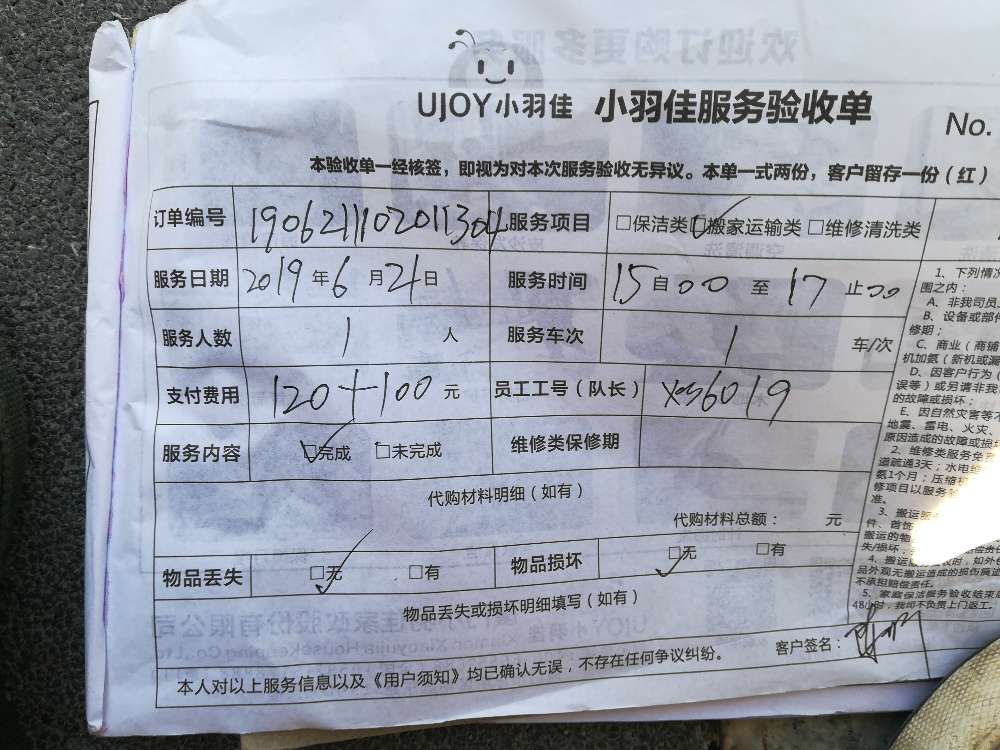 UJOY小羽佳 小羽佳服务验收单
No.
本验收单一经核签，即视为对本次服务验收无异议。本单一式两份，客户留存一份（红）
订单编号 1906211102011304 服务项目 □保洁类 ☑搬家运输类 □维修清洗类
服务日期 2019年6月21日 服务时间 15自00至17止00
服务人数 1人 服务车次 1车/次
支付费用 120+100元 员工工号（队长） XS6019
服务内容 ☑完成 □未完成 维修类保修期
代购材料明细（如有）
代购材料总额： 元
物品丢失 ☑无 □有 物品损坏 ☑无 □有
物品丢失或损坏明细填写（如有）
客户签名：
本人对以上服务信息以及《用户须知》均已确认无误，不存在任何争议纠纷。
1、下列情况
围之内：
A、非我司员
B、设备或部件
修期；
C、商业（商铺
机加氨（新机或漏
D、因客户行为（
误等）或另请非我
的故障或损坏；
E、因自然灾害等不
地震、雷电、火灾、
原因造成的故障或损坏
2、维修类服务免
道疏通3天；水电维
氨1个月；压缩机
修项目以服务
准。
3、搬运服
件、首饰
搬运的物
失/损坏，
4、搬运
品外观无搬运造成的损伤痕迹
不承担赔偿责任。
5、家庭保洁服务验收结束后
48小时，我司不负责上门返工。